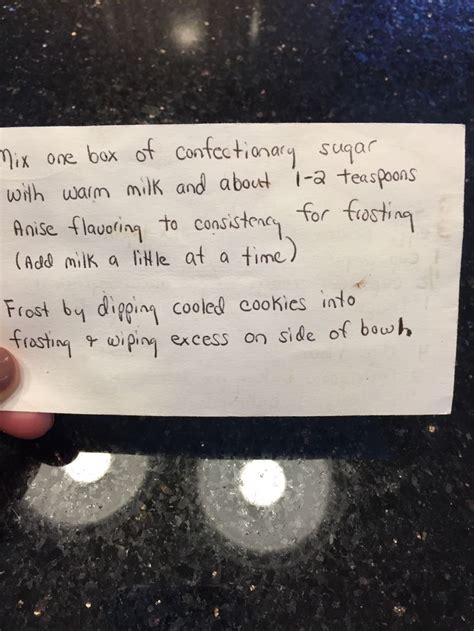 Mix one box of Confectionary sugar
with warm milk and about 1-2 teaspoons
Anise flavoring to consistency for frosting
(Add milk a little at a time)
Frost by dipping cooled cookies into
frosting & wiping excess on side of bowl